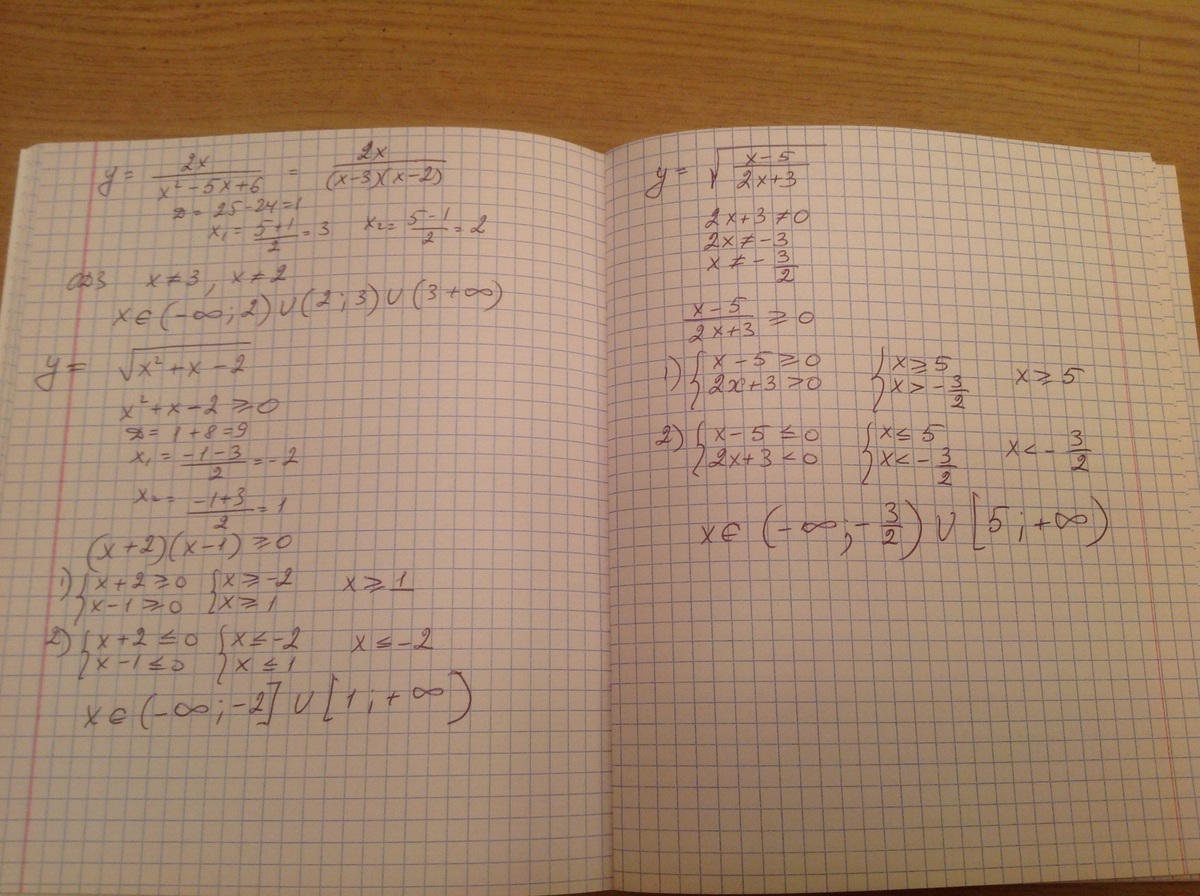 y = 2x / (x² - 5x + 6) = 2x / ((x-3)(x-2))
D = 25 - 24 = 1
x₁ = (5+1)/2 = 3 x₂ = (5-1)/2 = 2
ОДЗ x ≠ 3, x ≠ 2
x ∈ (-∞; 2) ∪ (2; 3) ∪ (3 +∞)
y = √(x² + x - 2)
x² + x - 2 ≥ 0
D = 1 + 8 = 9
x₁ = (-1-3)/2 = -2
x₂ = (-1+3)/2 = 1
(x+2)(x-1) ≥ 0
1) { x+2 ≥ 0 { x ≥ -2 x ≥ 1
{ x-1 ≥ 0 { x ≥ 1
2) { x+2 ≤ 0 { x ≤ -2 x ≤ -2
{ x-1 ≤ 0 { x ≤ 1
x ∈ (-∞; -2] ∪ [1; +∞)
y = √((x-5)/(2x+3))
2x+3 ≠ 0
2x ≠ -3
x ≠ -3/2
(x-5)/(2x+3) ≥ 0
1) { x-5 ≥ 0 { x ≥ 5 x ≥ 5
{ 2x+3 > 0 { x > -3/2
2) { x-5 ≤ 0 { x ≤ 5 x < -3/2
{ 2x+3 < 0 { x < -3/2
x ∈ (-∞; -3/2) ∪ [5; +∞)